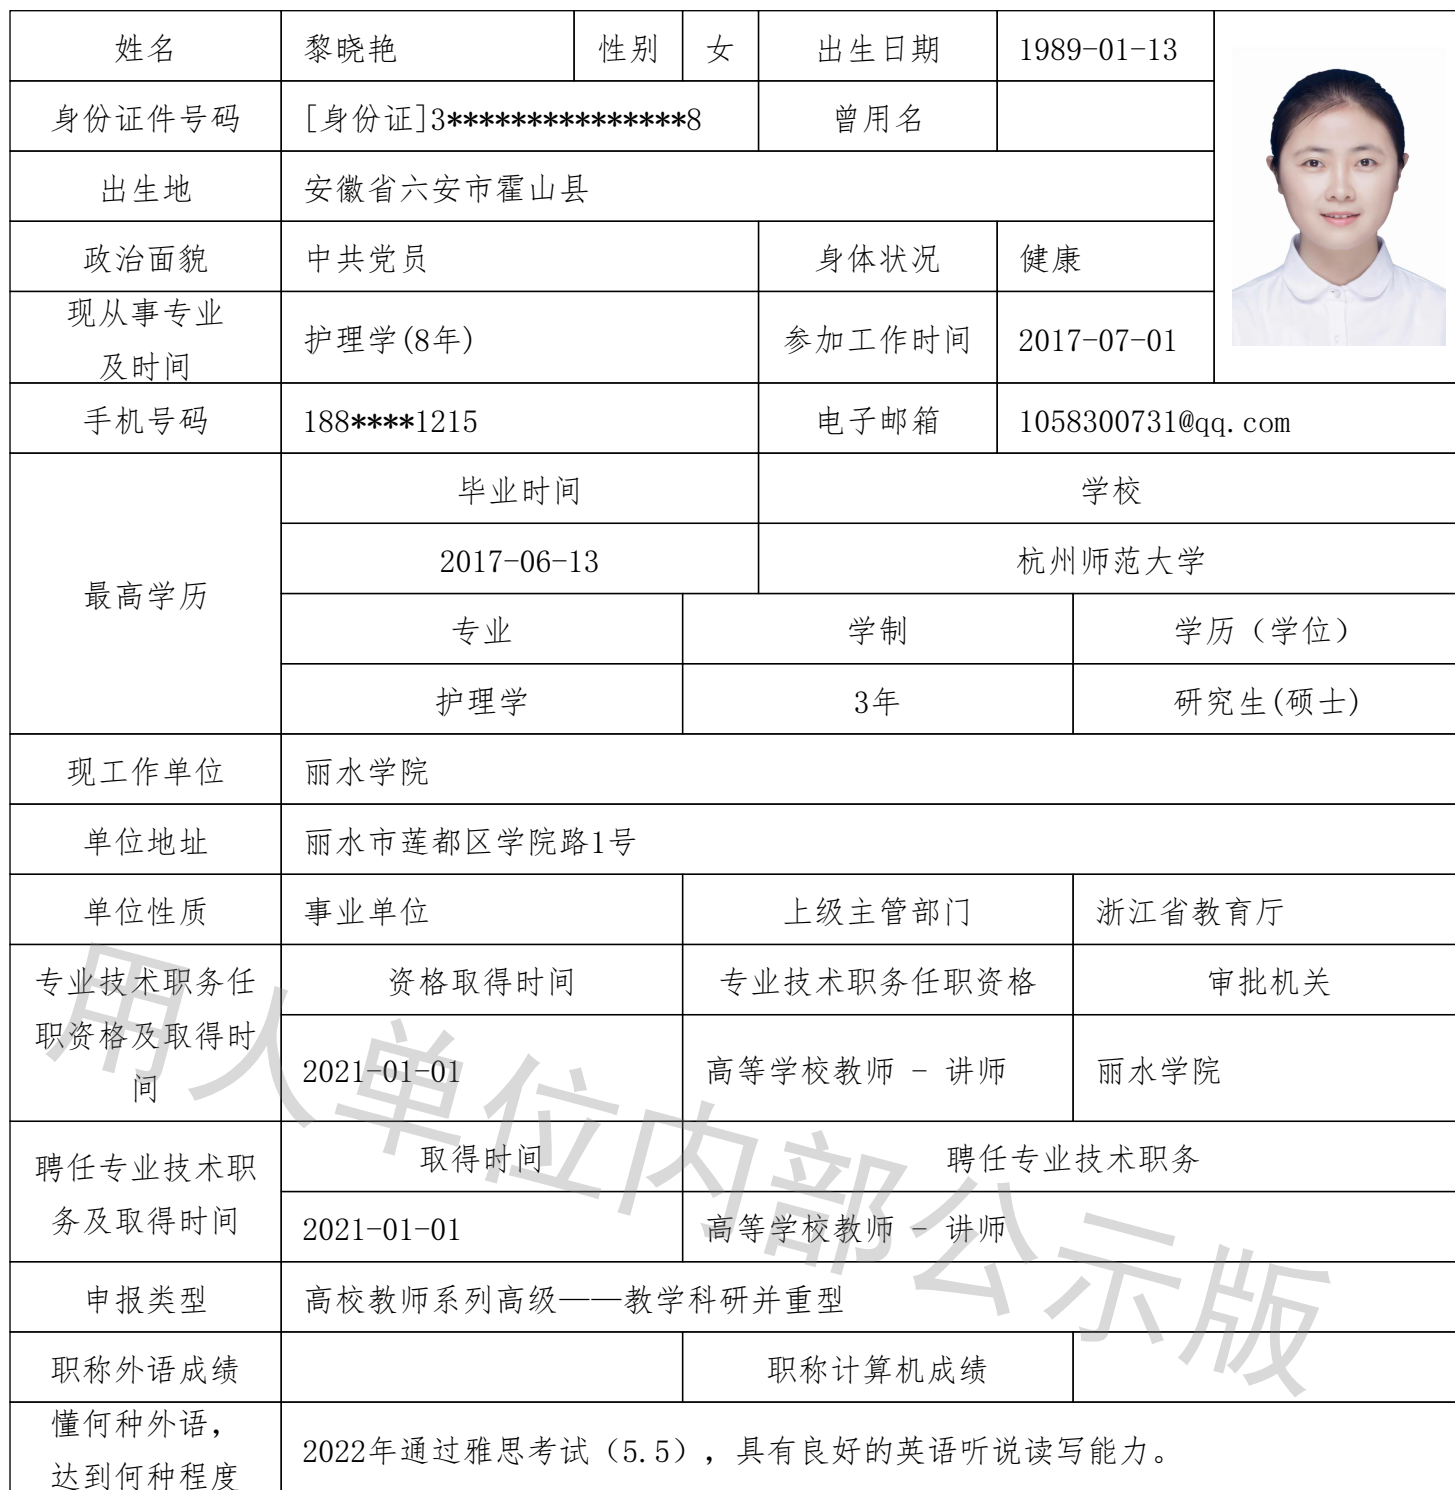 姓名 黎晓艳 性别 女 出生日期 1989-01-13
身份证件号码 [身份证]3****************8 曾用名
出生地 安徽省六安市霍山县
政治面貌 中共党员 身体状况 健康
现从事专业
及时间 护理学(8年) 参加工作时间 2017-07-01
手机号码 188****1215 电子邮箱 1058300731@qq.com
最高学历
毕业时间 学校
2017-06-13 杭州师范大学
专业 学制 学历（学位）
护理学 3年 研究生(硕士)
现工作单位 丽水学院
单位地址 丽水市莲都区学院路1号
单位性质 事业单位 上级主管部门 浙江省教育厅
专业技术职务任
职资格及取得时
间
资格取得时间 专业技术职务任职资格 审批机关
2021-01-01 高等学校教师 - 讲师 丽水学院
聘任专业技术职
务及取得时间
取得时间 聘任专业技术职务
2021-01-01 高等学校教师 - 讲师
申报类型 高校教师系列高级——教学科研并重型
职称外语成绩 职称计算机成绩
懂何种外语，
达到何种程度
2022年通过雅思考试（5.5），具有良好的英语听说读写能力。
用人单位内部公示版